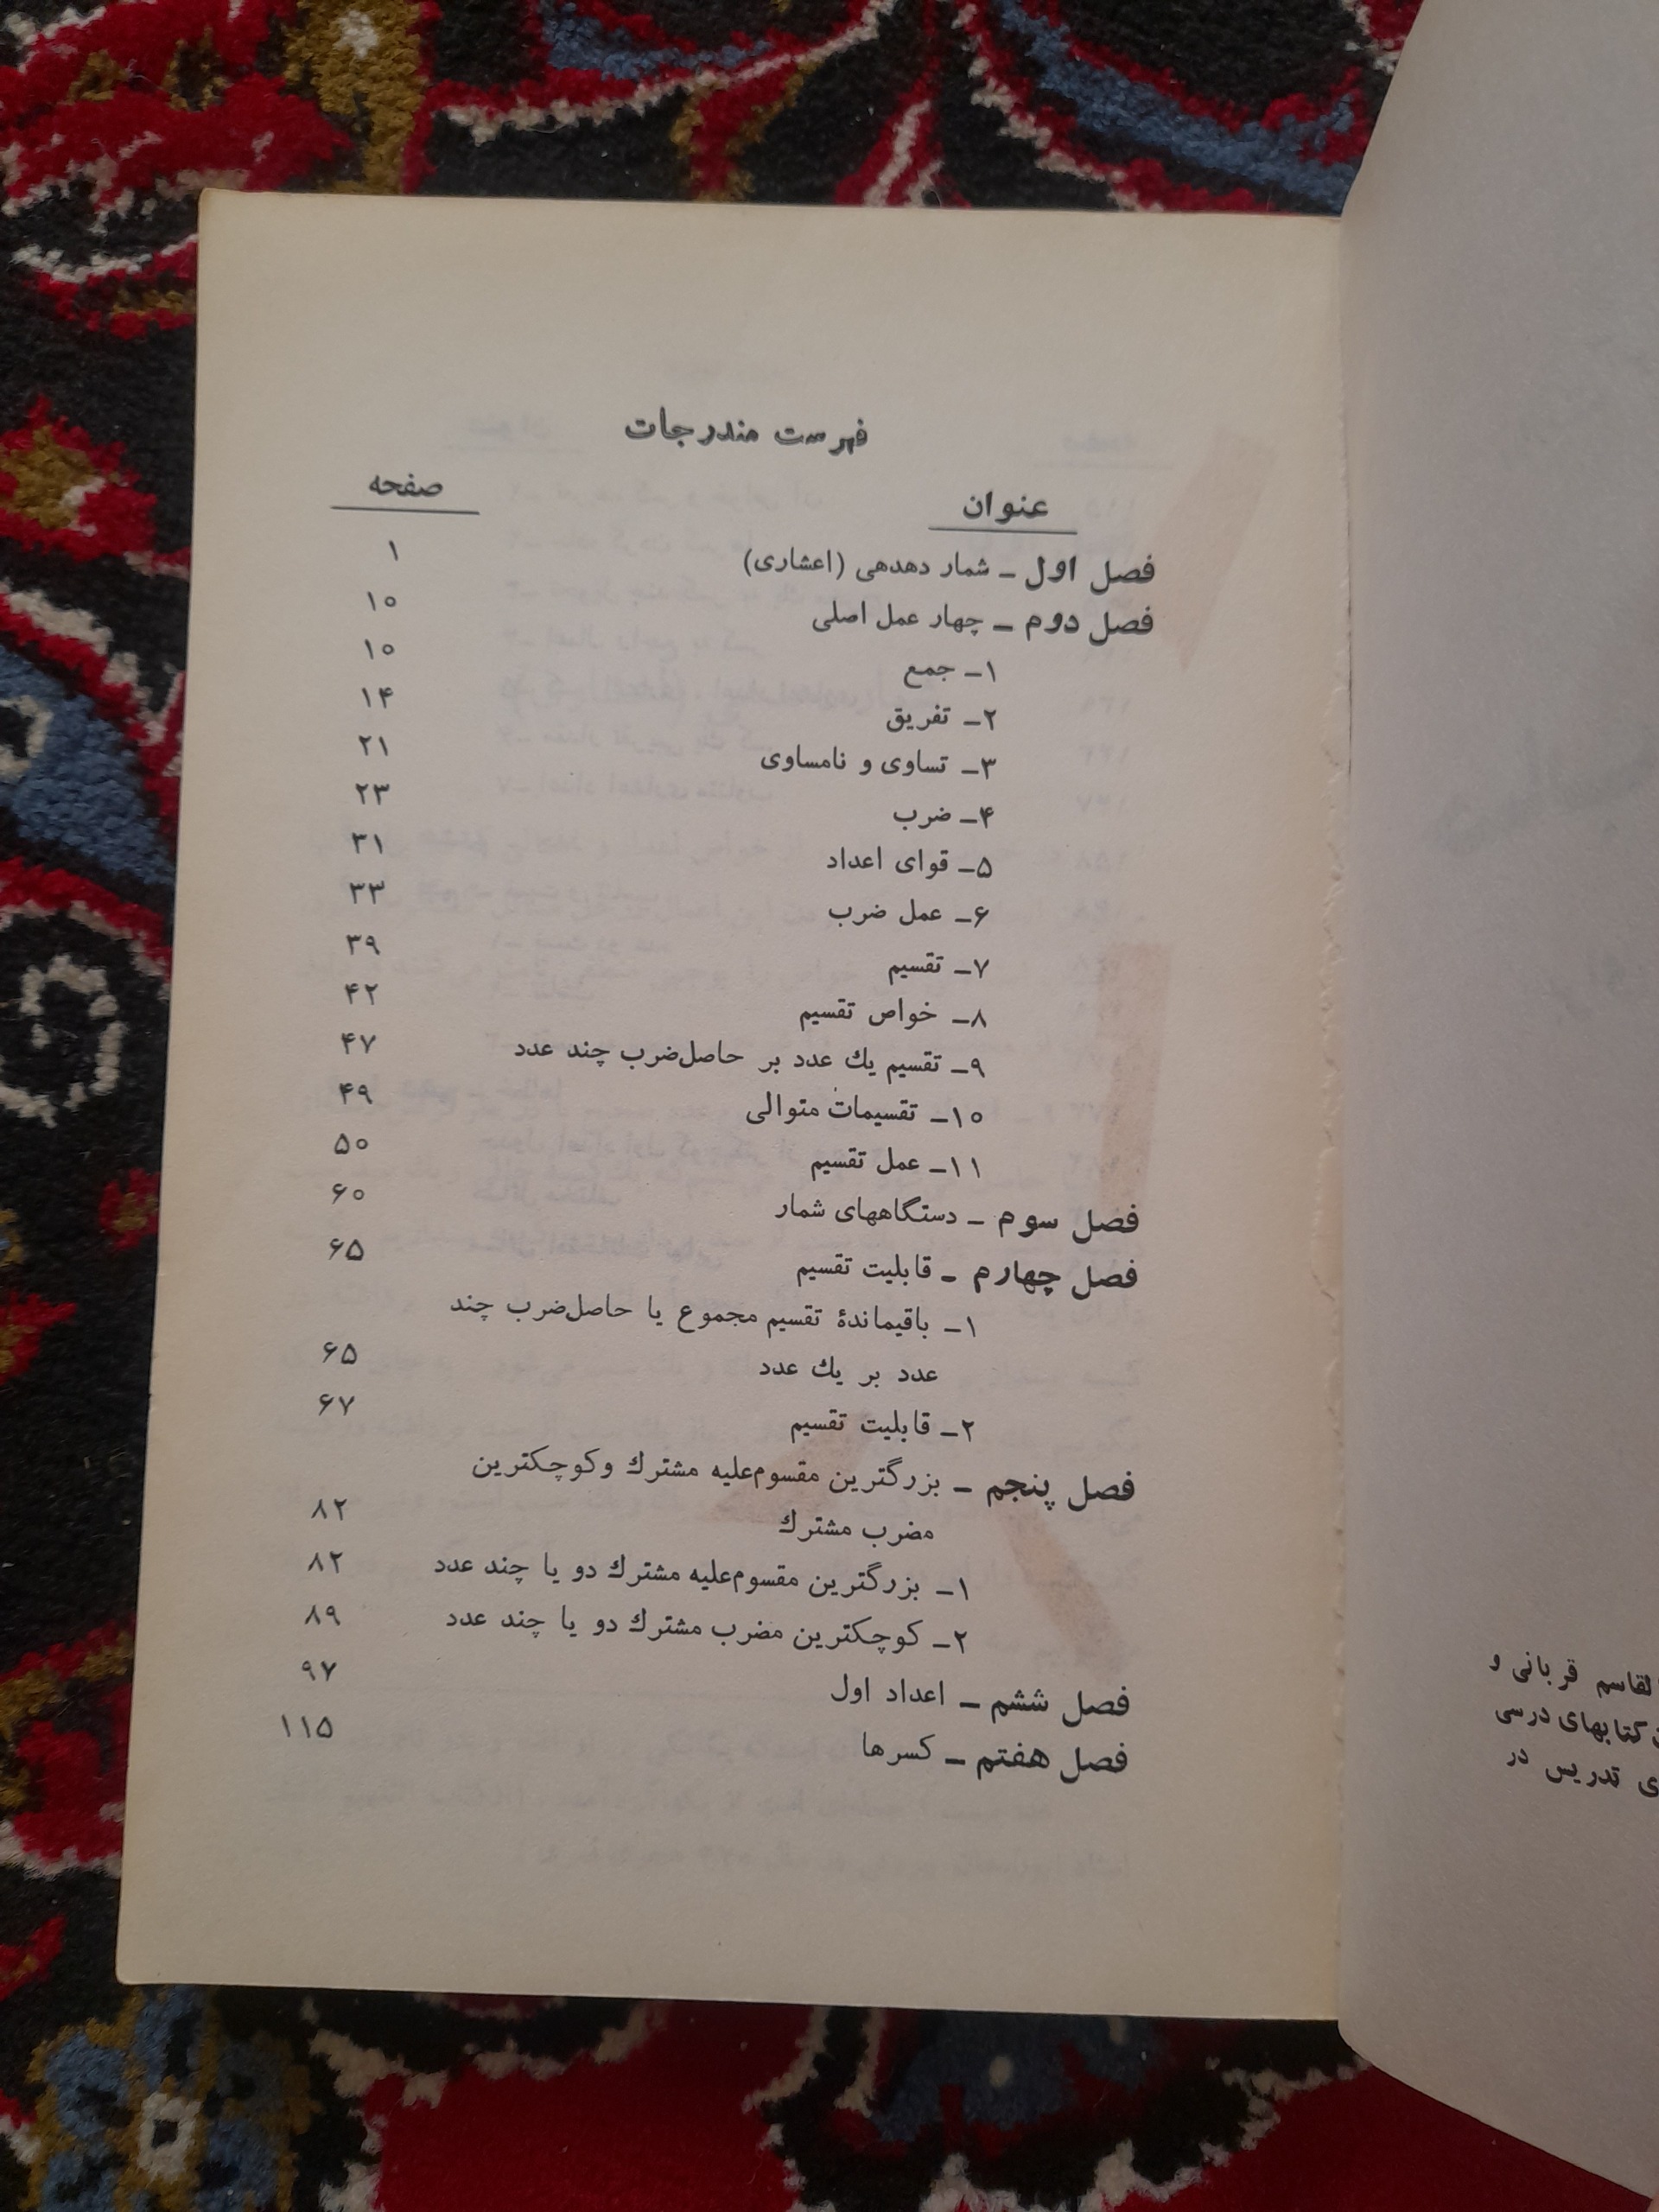 فهرست مندرجات
عنوان صفحه
فصل اول ــ شمار دهدهی (اعشاری) ۱
فصل دوم ــ چهار عمل اصلی ۱۰
۱ــ جمع ۱۰
۲ــ تفریق ۱۴
۳ــ تساوی و نامساوی ۲۱
۴ــ ضرب ۲۳
۵ــ قوای اعداد ۳۱
۶ــ عمل ضرب ۳۳
۷ــ تقسیم ۳۹
۸ــ خواص تقسیم ۴۲
۹ــ تقسیم یك عدد بر حاصل‌ضرب چند عدد ۴۷
۱۰ــ تقسیمات متوالی ۴۹
۱۱ــ عمل تقسیم ۵۰
فصل سوم ــ دستگاههای شمار ۶۰
فصل چهارم ــ قابلیت تقسیم ۶۵
۱ــ باقیماندهٔ تقسیم مجموع یا حاصل‌ضرب چند
عدد بر یك عدد ۶۵
۲ــ قابلیت تقسیم ۶۷
فصل پنجم ــ بزرگترین مقسوم‌علیه مشترك وکوچکترین
مضرب مشترك ۸۲
۱ــ بزرگترین مقسوم‌علیه مشترك دو یا چند عدد ۸۲
۲ــ کوچکترین مضرب مشترك دو یا چند عدد ۸۹
فصل ششم ــ اعداد اول ۹۷
فصل هفتم ــ کسرها ۱۱۵
قربانی و
کتابهای درسی
تدریس در